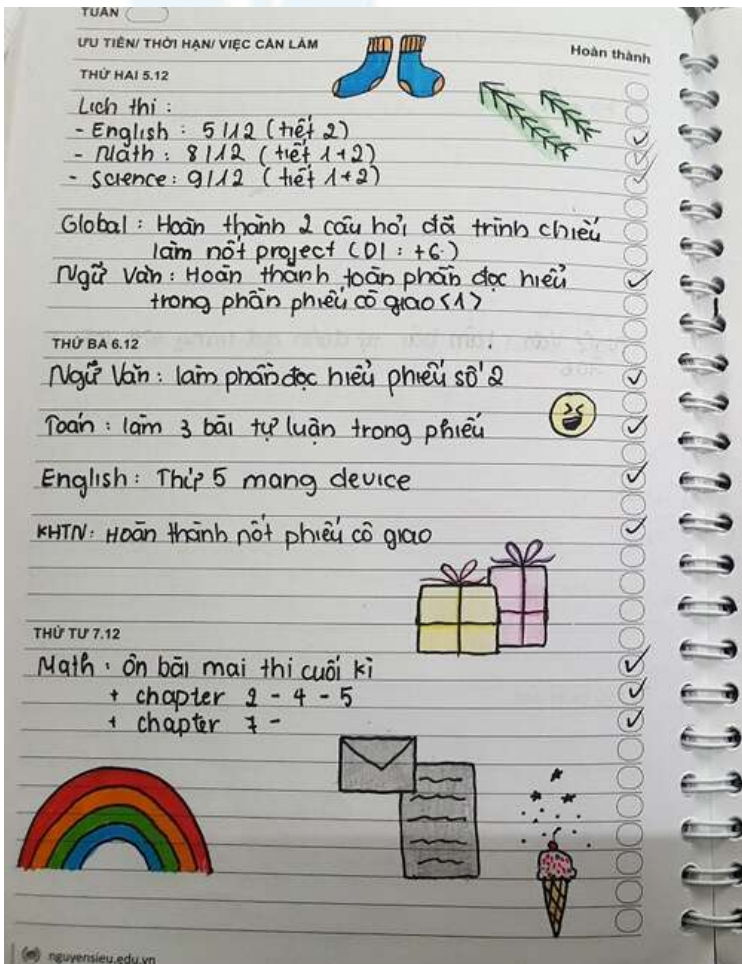 TUẦN
ƯU TIÊN/ THỜI HẠN/ VIỆC CẦN LÀM
Hoàn thành
THỨ HAI 5.12
Lịch thi :
- English : 5/12 (tiết 2)
- Math : 8/12 (tiết 1+2)
- Science : 9/12 (tiết 1+2)
Global : Hoàn thành 2 câu hỏi đã trình chiếu
làm nốt project (01 : +6.)
Ngữ Văn : Hoàn thành toàn phần đọc hiểu
trong phần phiếu cô giao <1>
THỨ BA 6.12
Ngữ Văn : làm phần đọc hiểu phiếu số 2
Toán : làm 3 bài tự luận trong phiếu
English : Thứ 5 mang device
KHTN : Hoàn thành nốt phiếu cô giao
THỨ TƯ 7.12
Math : ôn bài mai thi cuối kì
+ chapter 2 - 4 - 5
+ chapter 7 -
nguyensieu.edu.vn